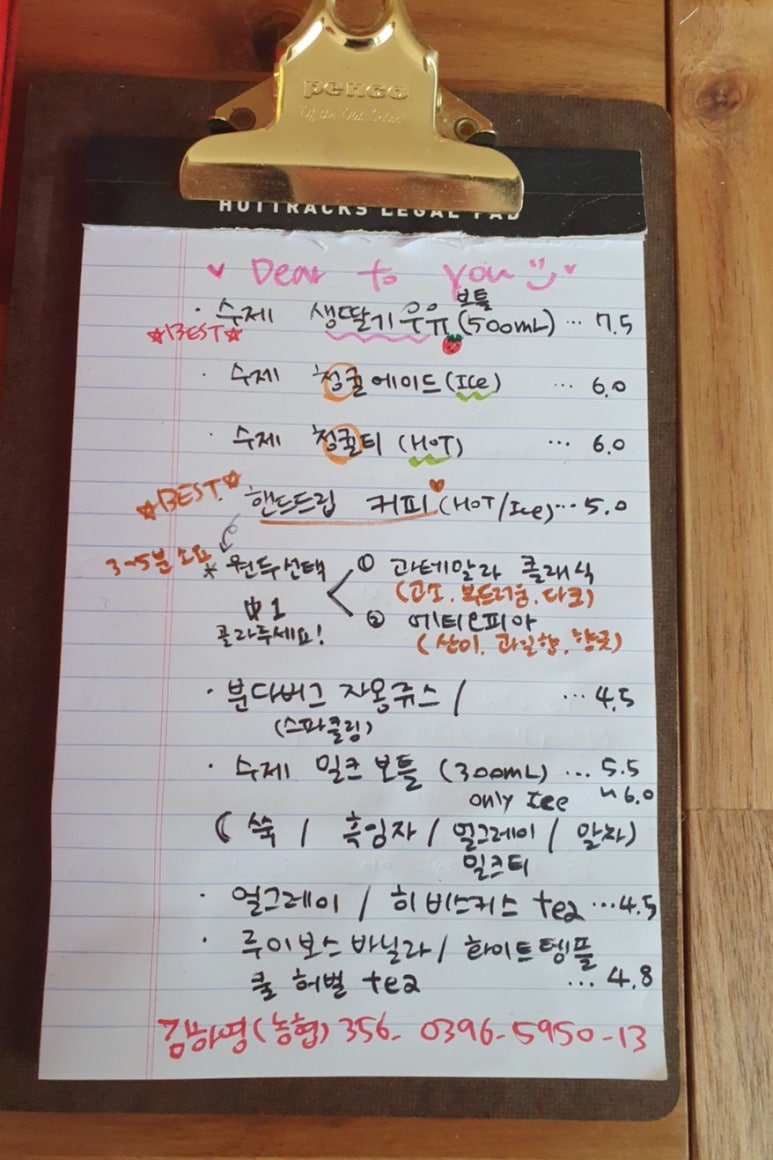 penco
HOTTRACKS LEGAL PAD
♥ Dear to you ♥
· 수제 생딸기우유 보틀 (500mL) ... 7.5
☆BEST☆
· 수제 청귤에이드 (Ice) ... 6.0
· 수제 청귤티 (HOT) ... 6.0
☆BEST☆
핸드드립 커피 (HOT/Ice) ... 5.0
3~5분 소요
* 원두선택 中1 골라주세요!
① 과테말라 클래식
(고소. 부드러움. 다크)
② 에티오피아
(산미. 과일향. 향긋)
· 분다버그 자몽쥬스 / ... 4.5
(스파클링)
· 수제 밀크 보틀 (300mL) ... 5.5
only Ice ~6.0
( 쑥 / 흑임자 / 얼그레이 밀크티 / 말차)
· 얼그레이 / 히비스커스 tea ... 4.5
· 루이보스 바닐라 / 화이트템플
쿨 허벌 tea ... 4.8
김하영 (농협) 356- 0396-5950-13